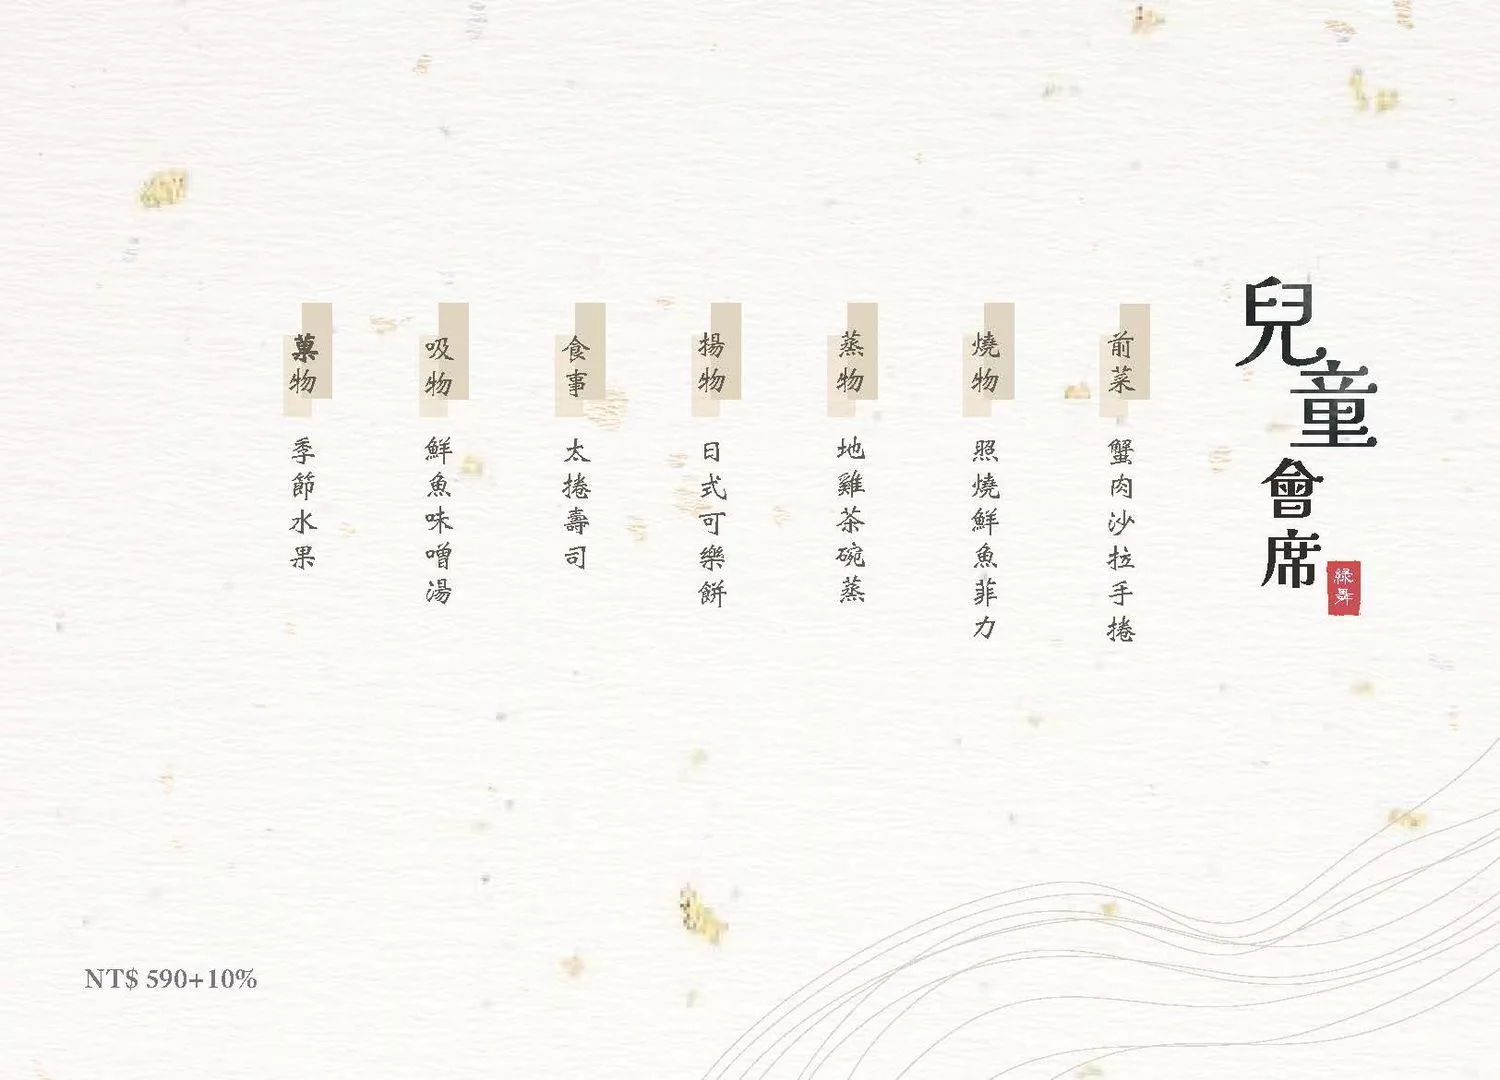 兒童會席
綠舞
前菜
蟹肉沙拉手捲
燒物
照燒鮮魚菲力
蒸物
地雞茶碗蒸
揚物
日式可樂餅
食事
太捲壽司
吸物
鮮魚味噌湯
菓物
季節水果
NT$ 590+10%